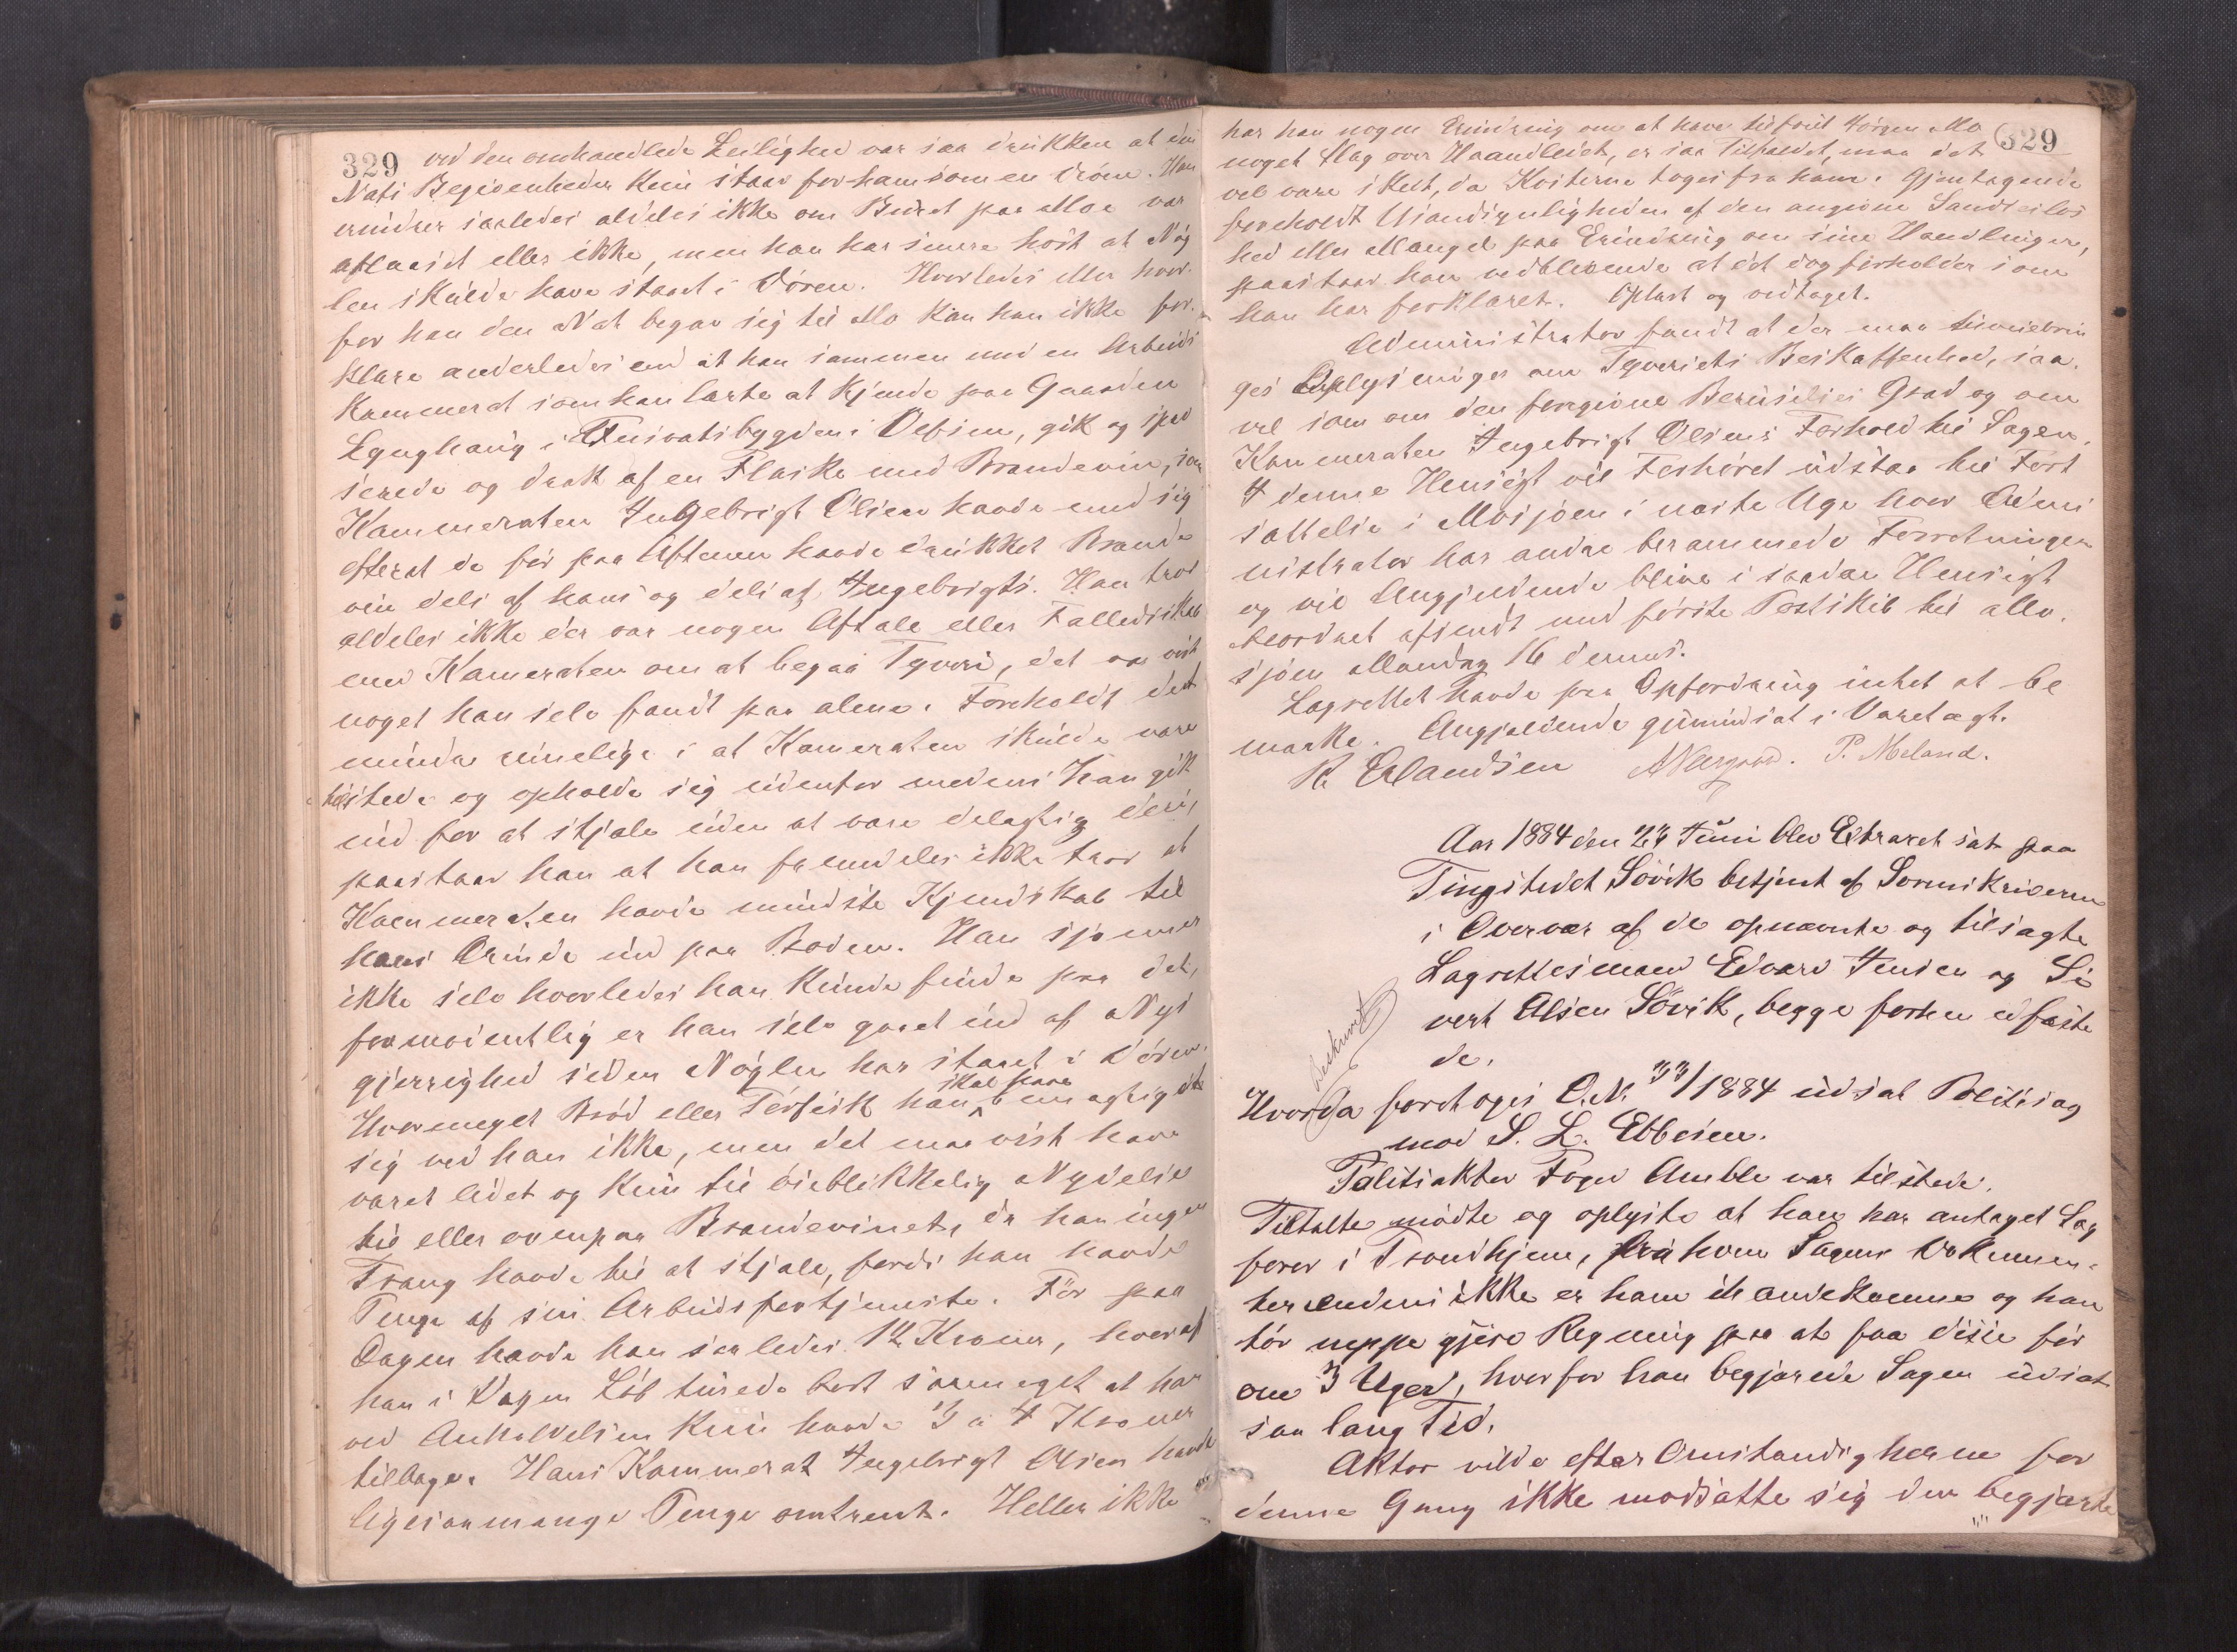 329
ved den omhandlede Leilighed var saa drukken at den
Nats Begivenheder kun staar for ham som en Dröm. Han
erindrer saaledes aldeles ikke om Buret paa Moe var
aflaasit eller ikke, men han har senere hört at Nög
len skulde have staaet i Dören. Hvorledes eller hvor-
for han den Nat begav sig til Mo kan han ikke for-
klare anderledes end at han sammen med en Arbeids
kammerat som han lærte at kjende paa Gaarden
Lynghaug i Fusvatsbygden i Vefsen, gik og spad
serede og drak af en Flaske med Brændevin, som
Kammeraten Ingebrigt Olsen havde med sig
efterat de för paa Aftenen havde drukket Brænde
vin dels af hans og dels af Ingebrigts. Han tror
aldeles ikke der var nogen Aftale eller Fælledskab
med Kameraten om at begaa Tyveri, det var vist
noget han selv fandt paa alene. Foreholdt det
mindre rimelige i at Kameraten skulde være
tilstede og opholde sig udenfor medens Han gik
ind for at stjæle uden at være delagtig deri,
paastaar han at han fremdeles ikke tror at
Kammeraten havde mindste Kjendskab til
hans Ærinde ind paa Boden. Han skjönner
ikke selv hvorledes han kunde finde paa det,
formodentlig er han selv gaaet ind af Nys
gjerrighed siden Nöglen har staaet i Dören.
Hvormeget Bröd eller Törfisk han skal have bemægtiget
sig ved han ikke, men det maa vist have
været lidet og kun til öieblikkelig Nydelse
til eller ovenpaa Brændevinet, da han ingen
Trang havde til at stjæle, fordi han havde
Penge af sin Arbeidsfortjeneste. För paa
Dagen havde han saaledes 12 Kroner, hvoraf
han i Dagens Löb turede bort saameget at han
ved Anholdelsen kun havde 3 a 4 Kroner
tilbage. Hans Kammerat Ingebrigt Olsen havde
ligesaamange Penge omtrent. Heller ikke
329
har han nogen Erindring om at have tilföiet Jörgen Mo
noget Slag over Haandledet, er saa Tilfældet, maa det
vel være skeet, da Kvisterne toges fra ham. Gjentagende
foreholdt Usandsynligheden af den angivne Sandseslös
hed eller Mangel paa Erindring om sine Handlinger,
paastaar han vedblivende at det dog forholder som
han har forklaret. Oplæst og vedtaget.
Administrator fandt at der maa tilveiebrin
ges Oplysninger om Tyveriets Beskaffenhed, saa-
vel som om den foregivne Beruselses Grad og om
Kammeraten Ingebrigt Olsens Forhold til Sagen.
I denne Hensigt vil Forhöret udstaa til Fort
sættelse i Mosjöen i næste Uge hvor Admi
nistrator har andre berammede Forretninger
og vil Angjældende blive i saadan Hensigt
beordret afsendt med förste Postskib til Mo-
sjöen Mandag 16 dennes.
Lagrettet havde paa Opfordring intet at be
mærke. Angjældende gjenindsat i Varetægt.
R. Erlandsen P. Meland.
Aar 1884 den 23 Juni blev Extraret sat paa
Tingstedet Sövik betjent af Sorenskriveren
i Overvær af de opnævnte og tilsagte
Lagrettesmænd Edvard Jensen og Si
vert Olsen Sövik, begge forhen edfæste
de.
Beskrevet
Hvorda foretoges O.N. 33/1884 udsat Politisag
mod S. L. Ebbesen.
Politiaktor Foged Amble var tilstede.
Tiltalte mödte og oplyste at have har antaget Sag
förer i Trondhjem, fra hvem Sagens Dokumen-
ter endnu ikke er ham ihændekomne og han
tör neppe gjöre Regning paa at faa disse för
om 3 Uger, hvorfor han begjærede Sagen udsat
saa lang Tid.
Aktor vilde efter Omstændighederne for
denne Gang ikke modsætte sig den begjærte